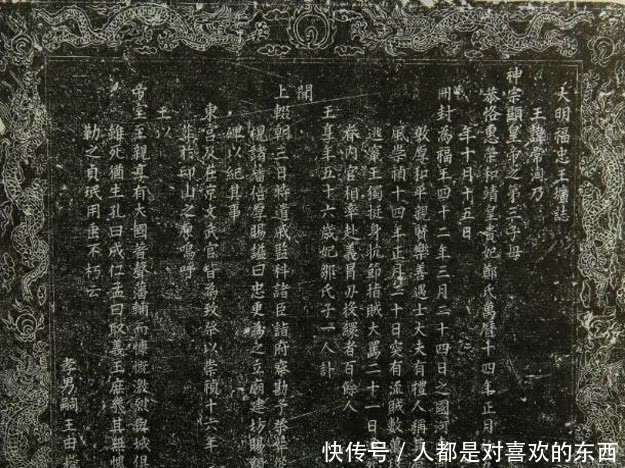 大明福忠王壙誌
王諱常洵乃
神宗顯皇帝之第三子母
恭恪惠榮和靖皇貴妃鄭氏萬曆十四年正月
年十月十五日
冊封為福王四十二年三月二十四日之國河
敦厚和平親賢樂善遇士大夫有禮人稱
風崇禎十四年正月二十日突有流賊數萬
逃棄王獨挺身抗節指賊大罵二十一日
眷內官相率赴義冒刃投繯者百餘人
王享年五十六歲妃鄒氏子一八計
聞
上輟朝三日特遣戚監科諸臣諸府察勘予祭
視諸藩倍厚賜諡曰忠更為之立廟建坊賜
碑以紀其事
東宮及在京文武官皆為致祭以崇禎十六年
葬於邙山之原嗚呼
王以
帝室至親享有大國耆聲藩輔而慷慨激烈與城俱
雖死猶生孔曰成仁孟曰取義王庶幾其無
勒之貞珉用垂不朽云
孝男嗣王由
快传号/人都是对喜欢的东西